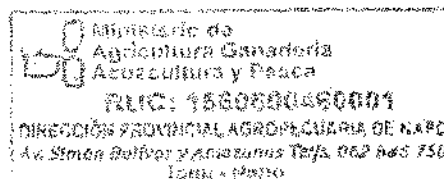 Ministerio de
Agricultura Ganadería
Acuacultura y Pesca
RUC: 1560600460001
DIRECCIÓN PROVINCIAL AGROPECUARIA DE NAPO
Av. Simón Bolívar y Amazonas Telfs. 062
Tena - Napo